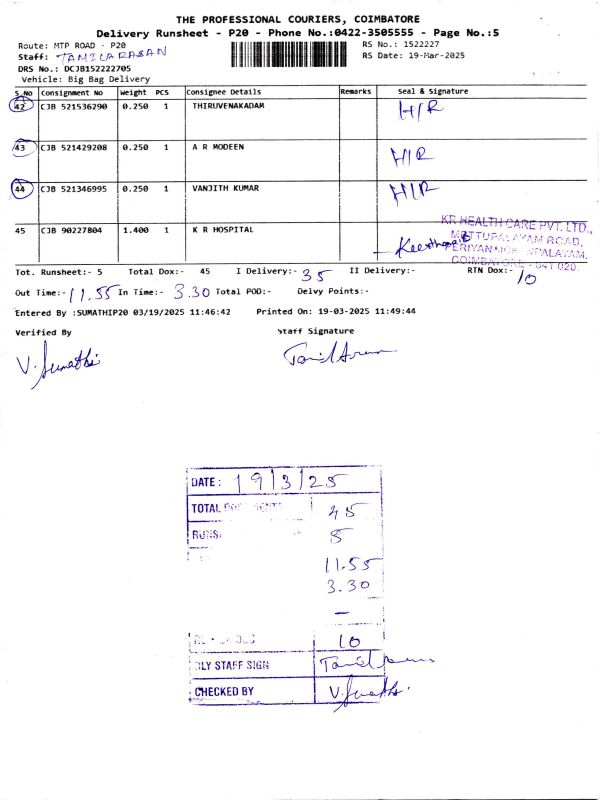 THE PROFESSIONAL COURIERS, COIMBATORE
Delivery Runsheet - P20 - Phone No.:0422-3505555 - Page No.:5
Route: MTP ROAD - P20 RS No.: 1522227
Staff: TAMILARASAN RS Date: 19-Mar-2025
DRS No.: DCJB152222705
Vehicle: Big Bag Delivery
S_No Consignment No Weight PCS Consignee Details Remarks Seal & Signature
42 CJB 521536290 0.250 1 THIRUVENAKADAM H/R
43 CJB 521429208 0.250 1 A R MODEEN H/R
44 CJB 521346995 0.250 1 VANJITH KUMAR H/R
45 CJB 90227804 1.400 1 K R HOSPITAL
KR HEALTH CARE PVT. LTD.,
METTUPALAYAM ROAD,
COIMBATORE - 641 020.
Tot. Runsheet:- 5 Total Dox:- 45 I Delivery:- 35 II Delivery:- RTN Dox:- 10
Out Time:- 11.55 In Time:- 3.30 Total POD:- Delvy Points:-
Entered By :SUMATHIP20 03/19/2025 11:46:42 Printed On: 19-03-2025 11:49:44
Verified By Staff Signature
V. Sumathi
DATE : 19/3/25
TOTAL 45
5
11.55
3.30
-
10
DLY STAFF SIGN
CHECKED BY V. Sumathi